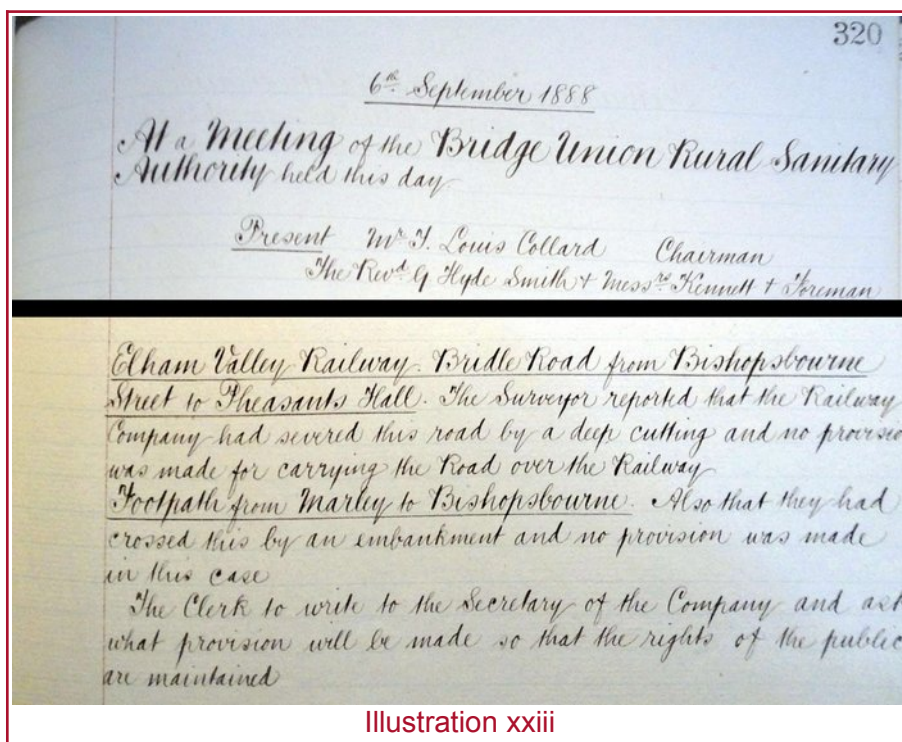 320
6th September 1888
At a Meeting of the Bridge Union Rural Sanitary
Authority held this day
Present Mr T. Louis Collard Chairman
The Revd G Hyde Smith + Messrs Kennett + Foreman
Elham Valley Railway. Bridle Road from Bishopsbourne
Street to Pheasants Hall. The Surveyor reported that the Railway
Company had severed this road by a deep cutting and no provisio
was made for carrying the Road over the Railway
Footpath from Marley to Bishopsbourne. Also that they had
crossed this by an embankment and no provision was made
in this case
The Clerk to write to the Secretary of the Company and ask
what provision will be made so that the rights of the public
are maintained
Illustration xxiii